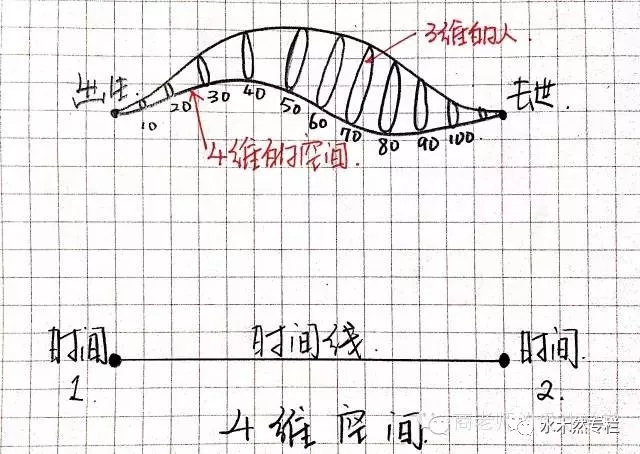 3维的人
出生
去世
10
20
30
40
50
60
70
80
90
100
4维的空间
时间1
时间线
时间2
4维空间
水木然专栏